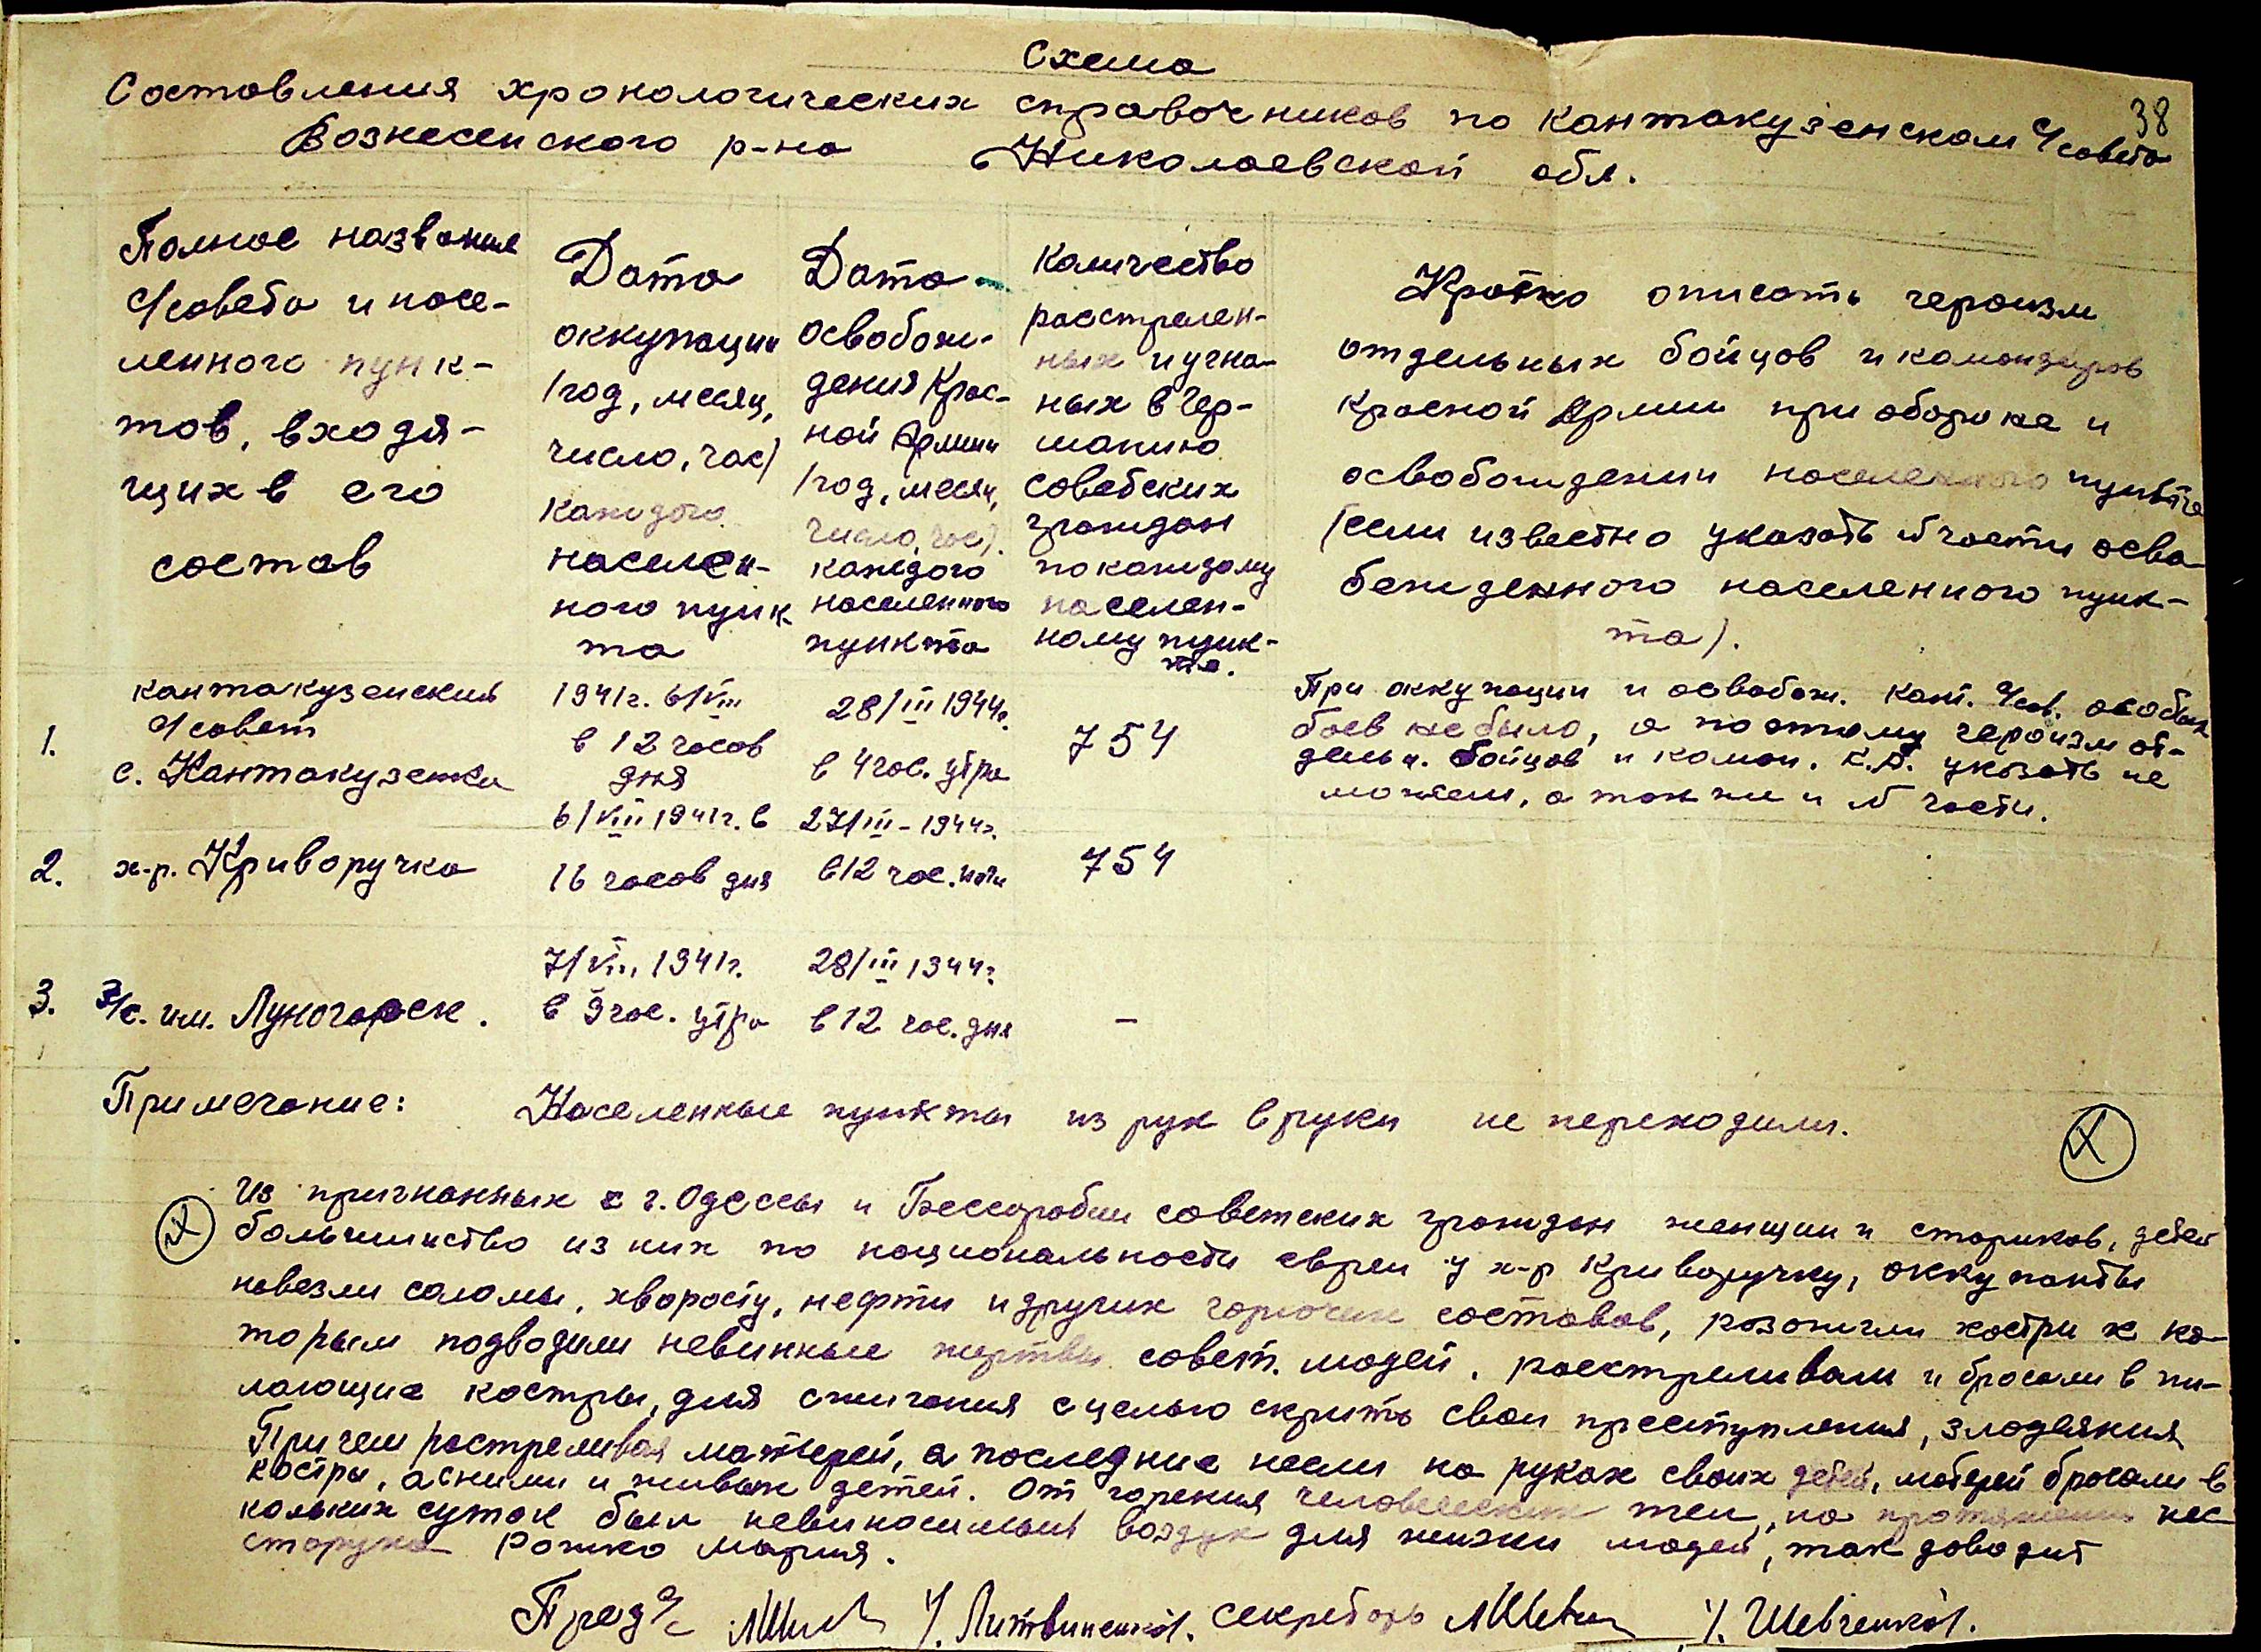 Схема
38
Составления хронологических справочников по Кантакузенском с/совета
Вознесенского р-на Николаевской обл.
Полное название
с/совета и насе-
ленного пунк-
тов, входя-
щих в его
состав
Дата
оккупации
/год, месяц,
число, час/
каждого
населен-
ного пунк
та
Дата
освобож-
дения Крас-
ной Армии
/год, месяц,
число, час/.
каждого
населенного
пункта
Количество
расстрелен-
ных и угна-
ных в Гер-
манию
советских
граждан
по каждому
населен-
ному пунк-
та.
Кратко описать героизм
отдельных бойцов и командиров
Красной Армии при обороне и
освобождении населенного пункта
(если известно указать № части осво
божденного населенного пунк-
та).
1.
Кантакузенский
с/совет
с. Кантакузенка
1941г. 6/VIII
в 12 часов
дня
28/III 1944г.
в 4 час. утра
754
При оккупации и освобож. Кант. с/сов. особых
боев не было, а поэтому героизм от-
дельн. бойцов и коман. К.А. указать не
можем, а так же и № части.
2. х-р. Криворучка
6/VIII 1941г. в
16 часов дня
27/III - 1944г.
в 12 час. ночи
754
3. З/с. им. Луначарск.
7/VIII 1941г.
в 9 час. утра
28/III 1944г.
в 12 час. дня
–
Примечание: Населенные пункты из рук в руки не переходили.
Из пригнанных с г. Одессы и Бессарабии советских граждан женщин и стариков, детей
большинство из них по национальности евреи у х-р Криворучку, оккупанты
навезли соломы, хворосту, нефти и других горючих составов, розожгли костры к ко-
торым подводили невинные жертвы совет. людей, расстреливали и бросали в пы-
лающие костры, для сжигания с целью скрить свои преступления, злодеяния
Причем растреливая матерей, а последние несли на руках своих детей, матерей бросали в
костры, а с ними и живых детей. От горения человеческих тел, на протяжении нес
кольких суток был невиносимый воздух для жизни людей, так доводит
старуха Рожко Мария.
Пред с/с /. Литвиненко/. Секретарь /. Шевченко/.